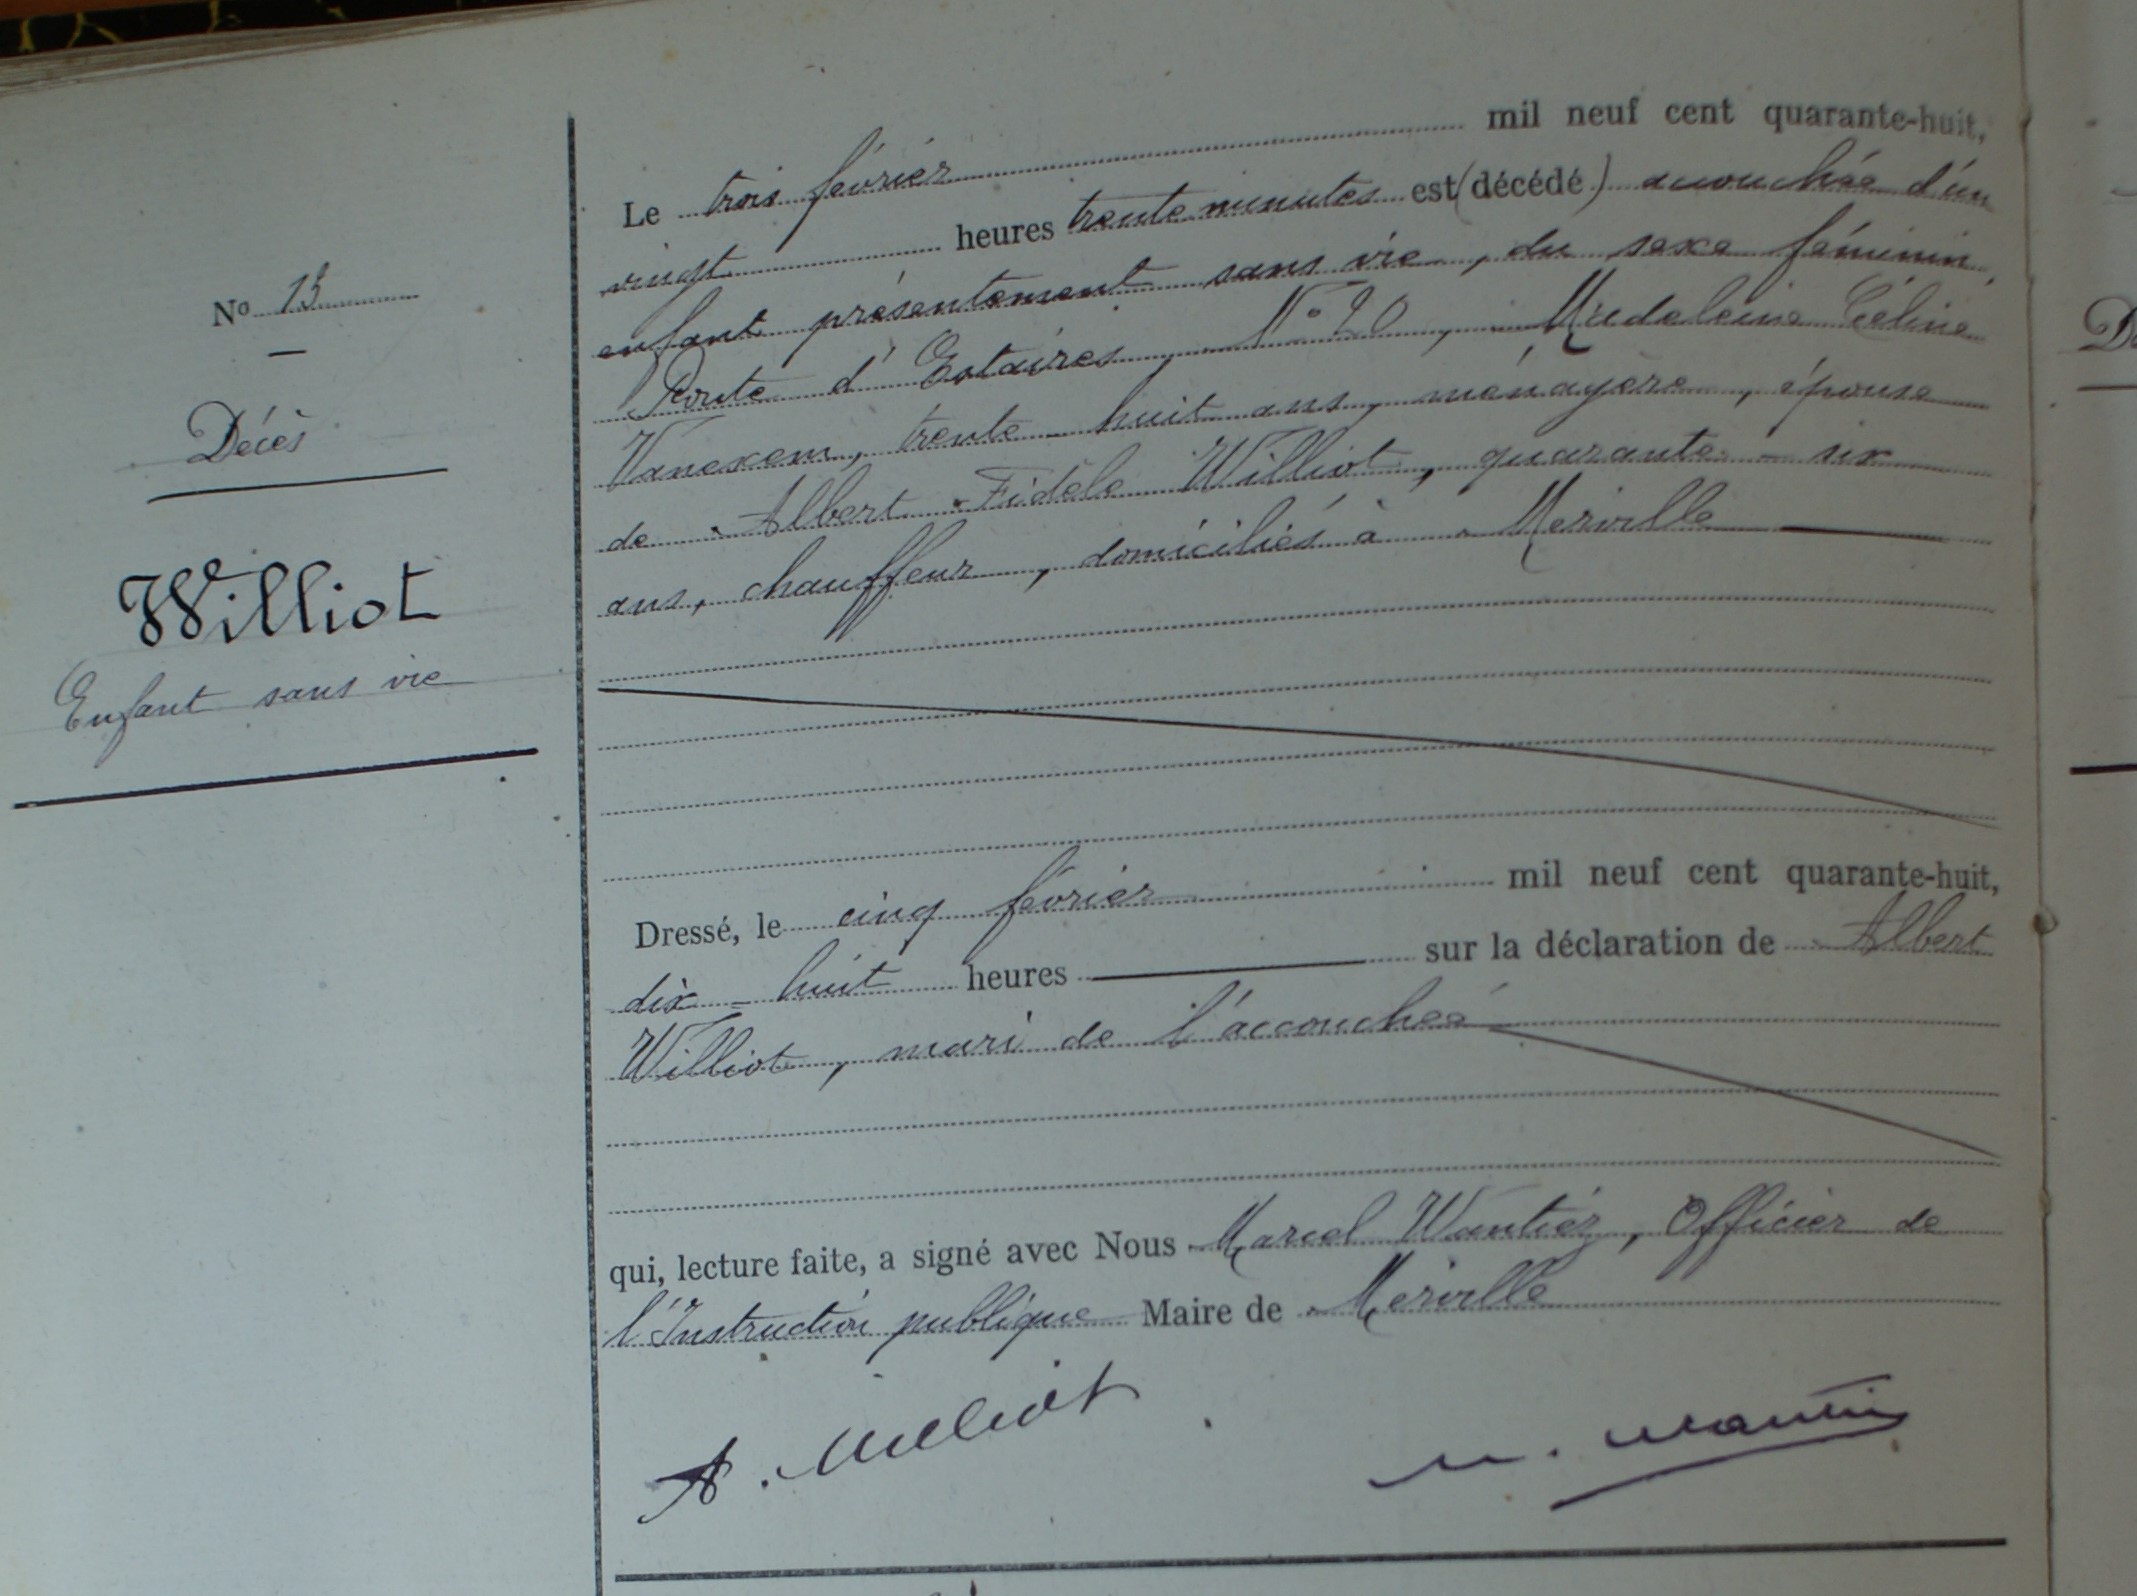 No 13
Décès
Williot
Enfant sans vie
Le trois février mil neuf cent quarante-huit,
vingt heures trente minutes est (décédé) accouchée d'un
enfant présentement sans vie, du sexe féminin,
Route d'Estaires, No 20, Madeleine Céline
Vanexem, trente-huit ans, ménagère, épouse
de Albert Fidèle Williot, quarante-six
ans, chauffeur, domiciliés à Merville
Dressé, le cinq février mil neuf cent quarante-huit,
dix-huit heures sur la déclaration de Albert
Williot, mari de l'accouchée
qui, lecture faite, a signé avec Nous Marcel Wantiez, Officier de
l'Instruction publique Maire de Merville
A. Williot
M. Wantiez